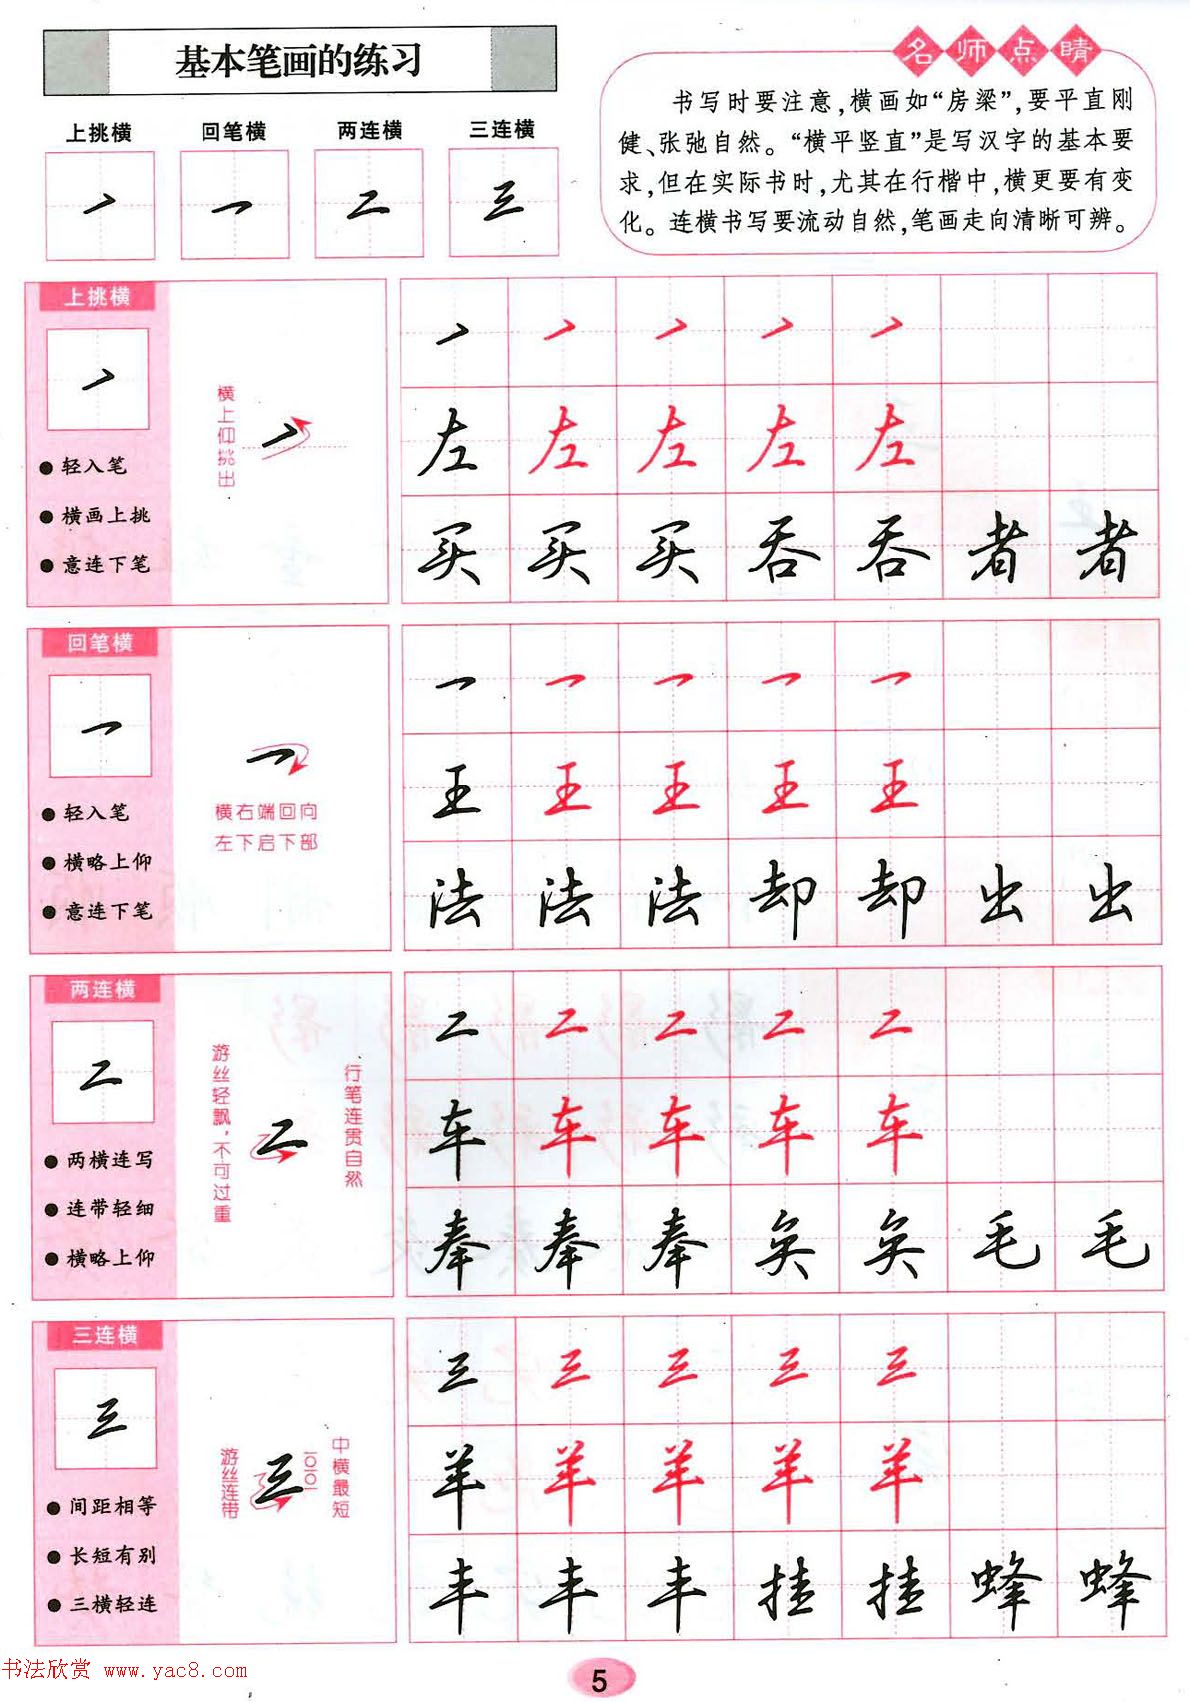 基本笔画的练习
名师点睛
书写时要注意,横画如“房梁”,要平直刚
健、张弛自然。“横平竖直”是写汉字的基本要
求,但在实际书时,尤其在行楷中,横更要有变
化。连横书写要流动自然,笔画走向清晰可辨。
上挑横 回笔横 两连横 三连横
一 一 二 三
上挑横
一
轻入笔
横画上挑
意连下笔
横上仰挑出
一
一 一 一 一 一
左 左 左 左 左
买 买 买 吞 吞 者 者
回笔横
一
轻入笔
横略上仰
意连下笔
一
横右端回向
左下启下部
一 一 一 一 一
王 王 王 王 王
法 法 法 却 却 出 出
两连横
二
两横连写
连带轻细
横略上仰
游丝轻飘,不可过重
二
行笔连贯自然
二 二 二 二 二
车 车 车 车 车
奉 奉 奉 奂 奂 毛 毛
三连横
三
间距相等
长短有别
三横轻连
游丝连带
三
中横最短
三 三 三 三 三
羊 羊 羊 羊 羊
丰 丰 丰 挂 挂 蜂 蜂
书法欣赏 www.yac8.com
5